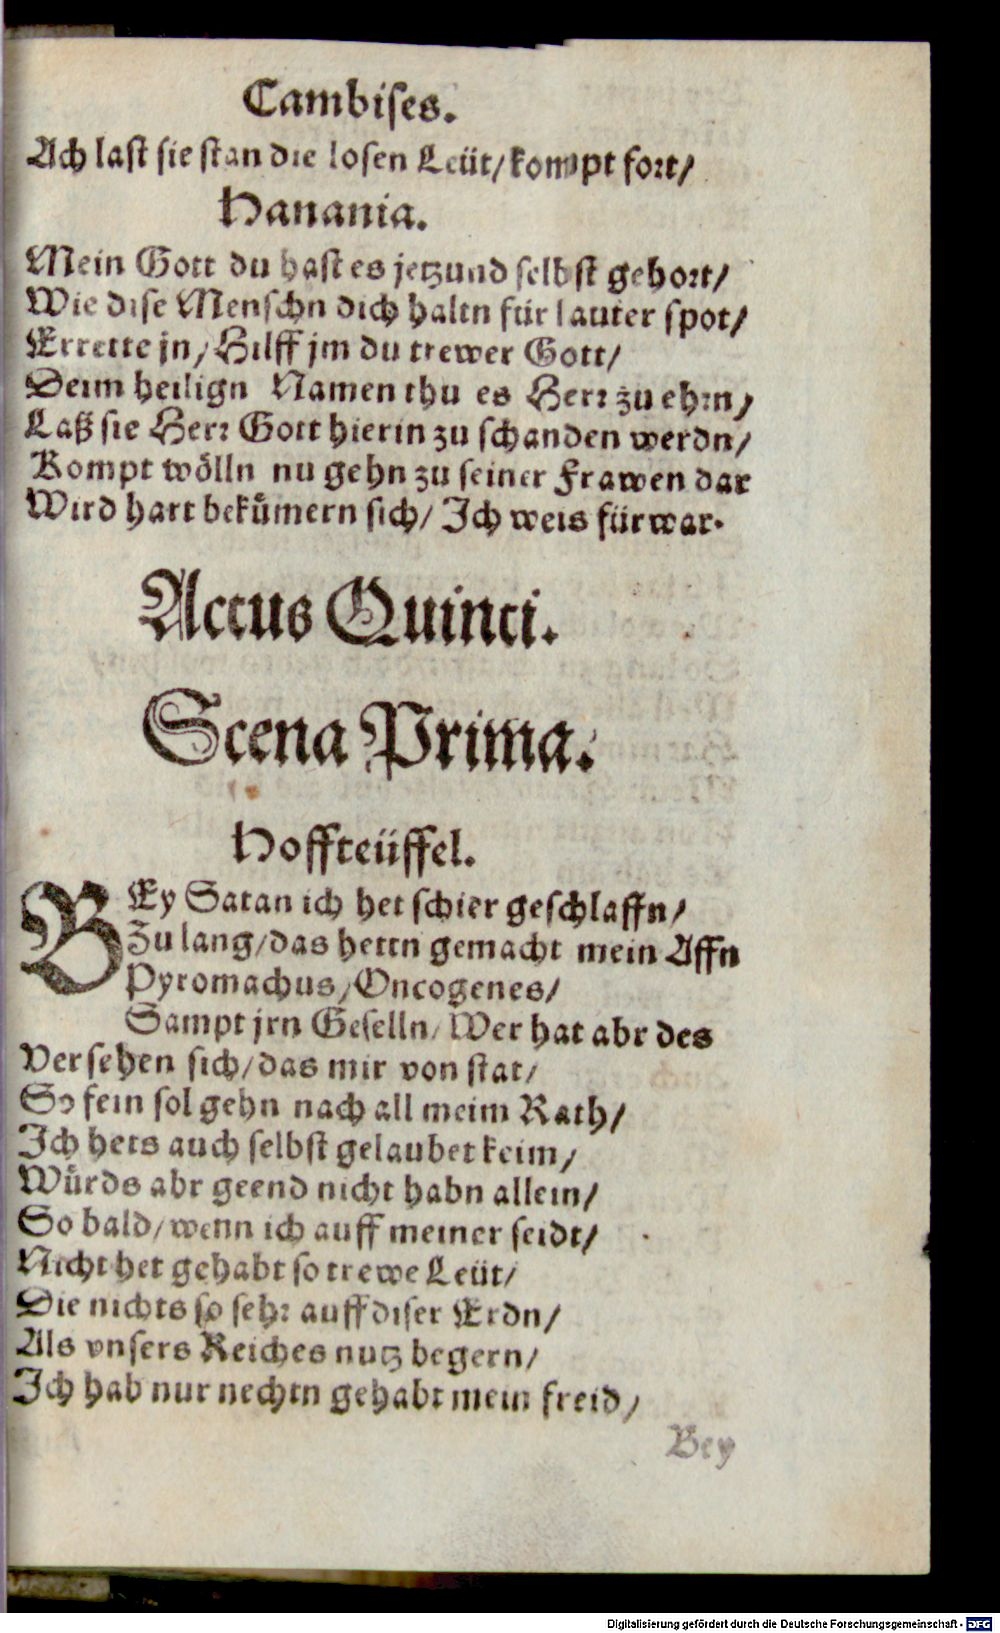 Cambises.
Ach last sie stan die losen Leüt/ kompt fort/
Hanania.
Mein Gott du hast es jetzund selbst gehort/
Wie dise Menschn dich haltn für lauter spot/
Errette jn/ Hilff jm du trewer Gott/
Deim heilign Namen thu es Herr zu ehrn/
Laß sie Herr Gott hierin zu schanden werdn/
Kompt wölln nu gehn zu seiner Frawen dar
Wird hart bekům̈ern sich/ Ich weis fürwar.
Actus Quinti.
Scena Prima.
Hoffteüffel.
BEy Satan ich het schier geschlaffn/
Zu lang/ das hettn gemacht mein Affn
Pyromachus/ Oncogenes/
Sampt jrn Geselln/ Wer hat abr des
Versehen sich/ das mir von stat/
So fein sol gehn nach all meim Rath/
Ich hets auch selbst gelaubet keim/
Wůrds abr geend nicht habn allein/
So bald/ wenn ich auff meiner seidt/
Nicht het gehabt so trewe Leüt/
Die nichts so sehr auff diser Erdn/
Als vnsers Reiches nutz begern/
Ich hab nur nechtn gehabt mein freid/
Bey
Digitalisierung gefördert durch die Deutsche Forschungsgemeinschaft - DFG